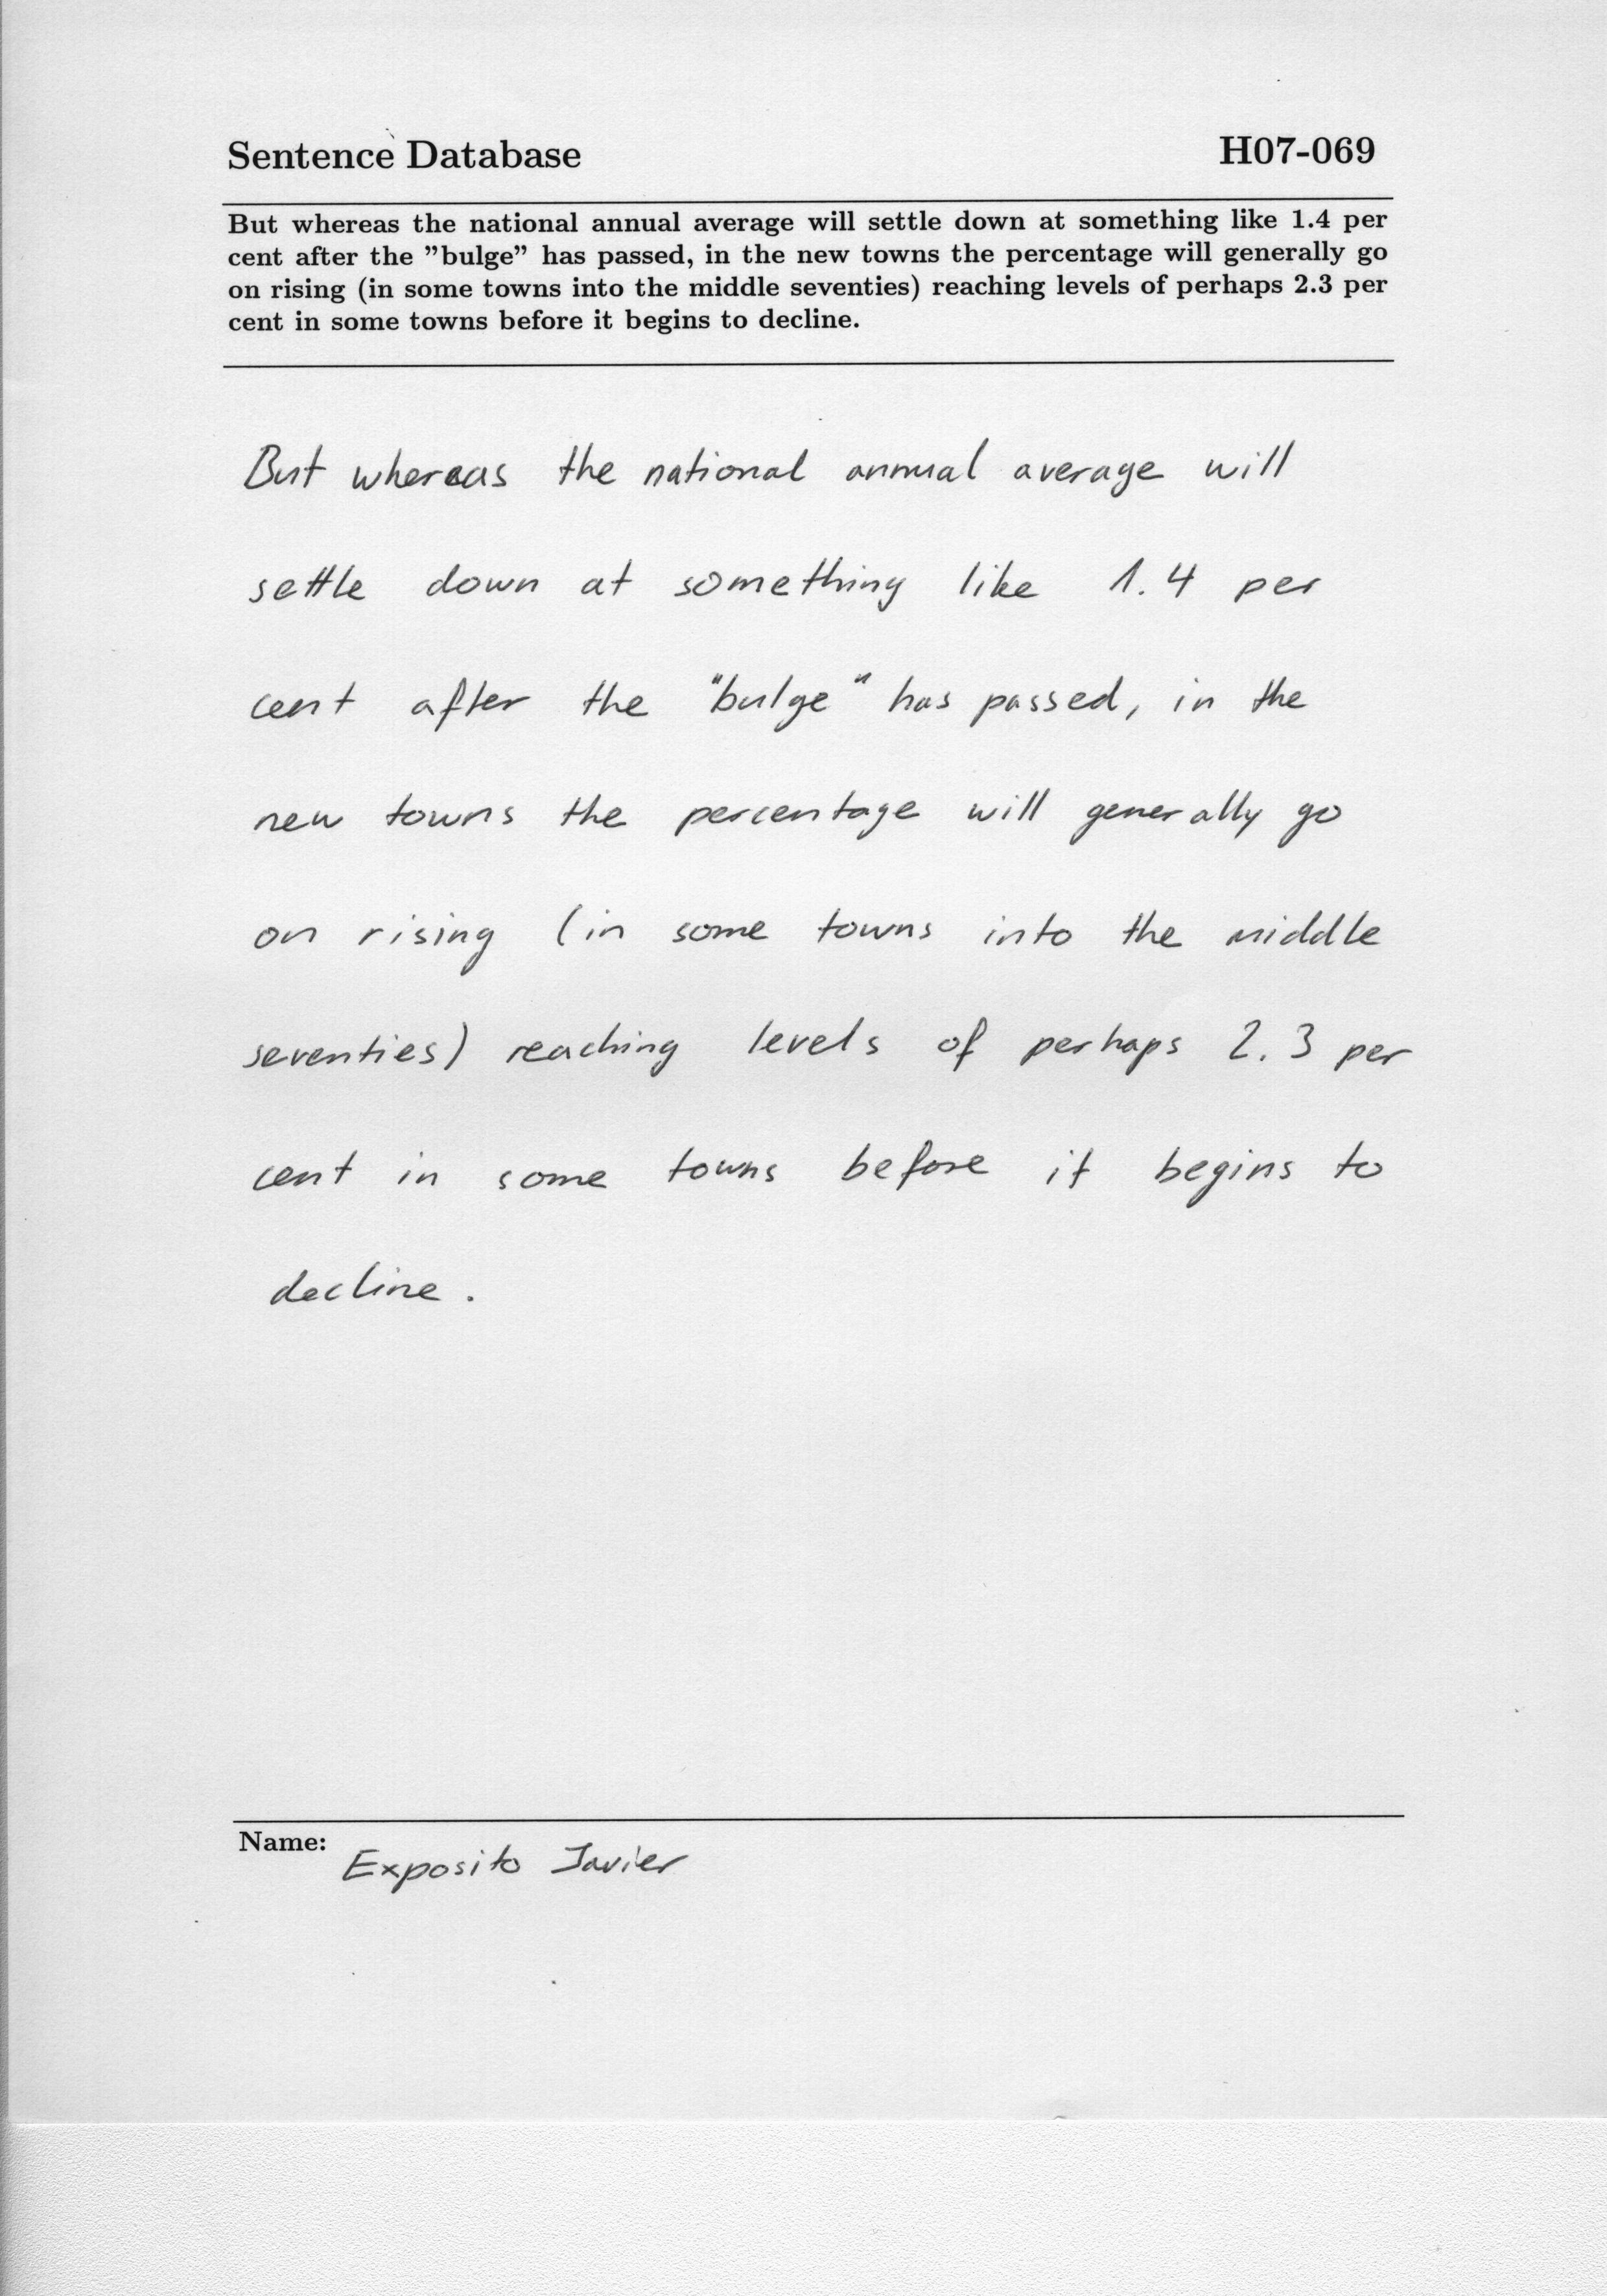 Sentence Database H07-069
But whereas the national annual average will settle down at something like 1.4 per
cent after the "bulge" has passed, in the new towns the percentage will generally go
on rising (in some towns into the middle seventies) reaching levels of perhaps 2.3 per
cent in some towns before it begins to decline.
But whereas the national annual average will
settle down at something like 1.4 per
cent after the "bulge" has passed, in the
new towns the percentage will generally go
on rising (in some towns into the middle
seventies) reaching levels of perhaps 2.3 per
cent in some towns before it begins to
decline.
Name:
Exposito Javier